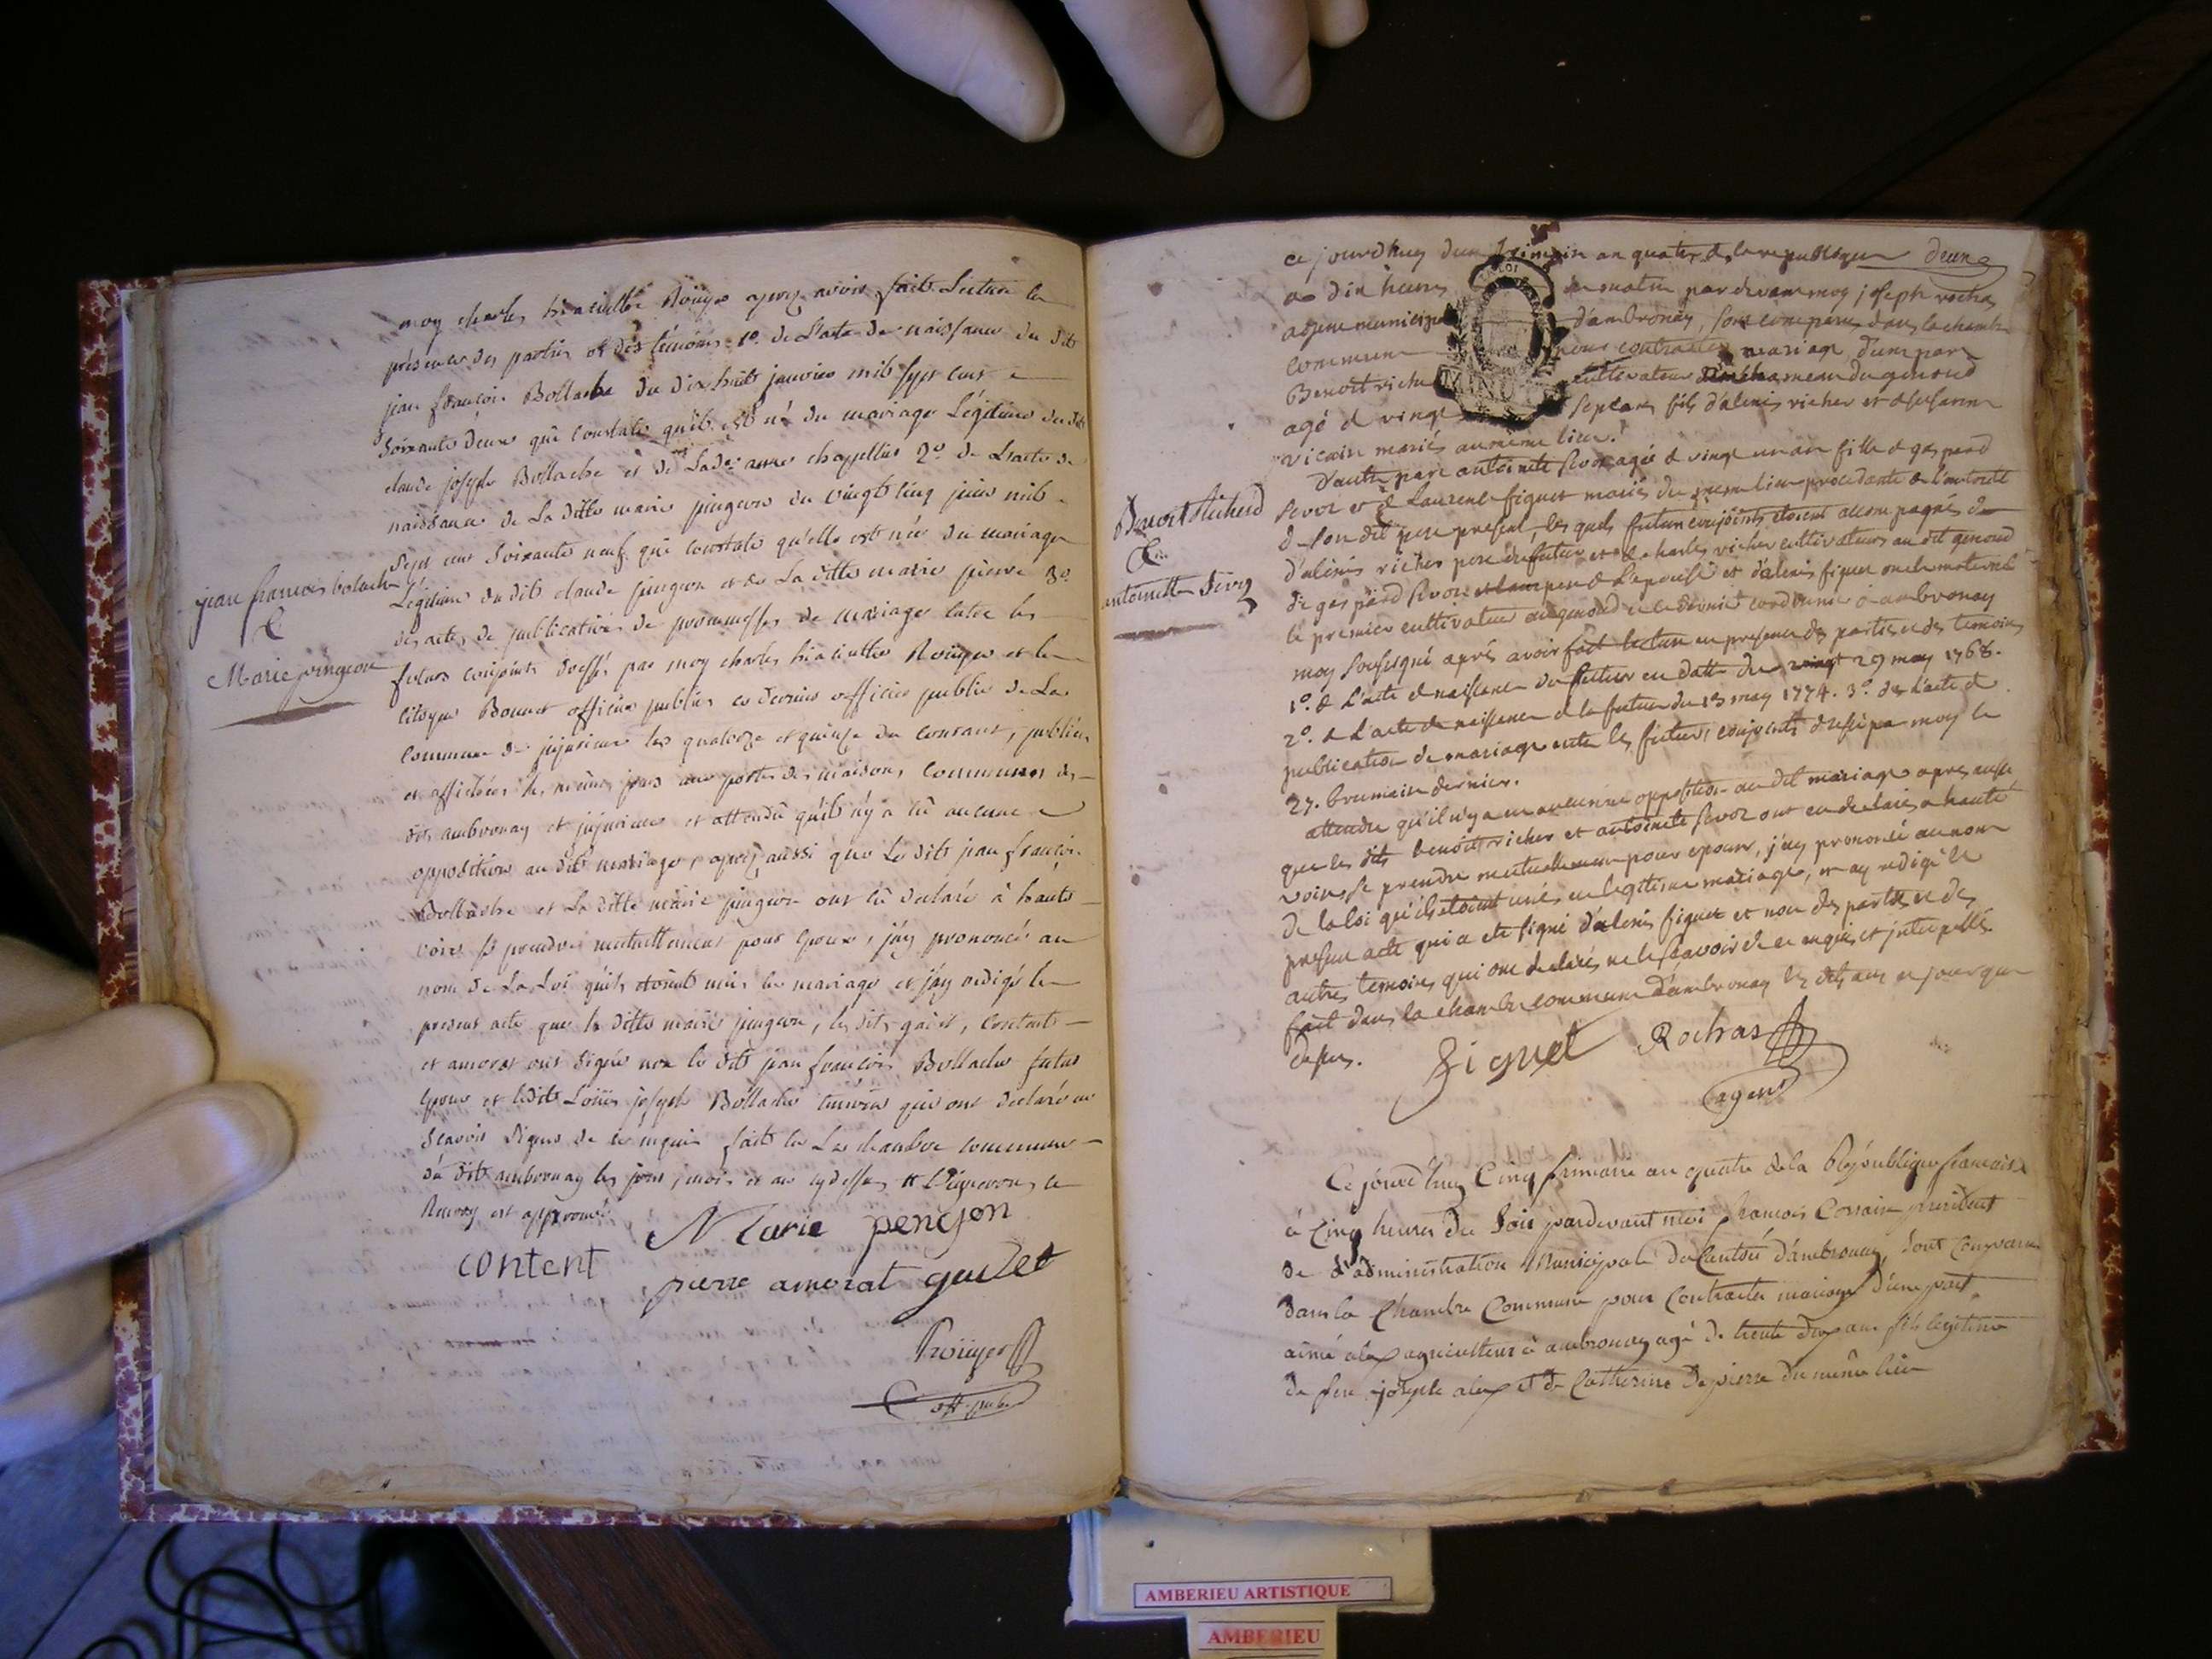 moy charles hiacinthe Roüyer aprez avoir fait Lecture en
présence des parties et des témoins 1º. de L'acte de naissance du dit
jean françois Bollache du dix huit janvier mil sept cent
soixante deux qui constate qu'il est né du mariage Légitime du dit
claude joseph Bollache et de Lade. anne chapellus 2º. de L'acte de
naissance de La ditte marie pingeon du vingt cinq juin mil
sept cent soixante neuf qui constate qu'elle est née du mariage
Légitime du dit claude pingeon et de La ditte marie pierre 3º.
des actes de publications de promesses de mariage entre les
futurs conjoints dressés par moy charles hiacinthe Roüyer et le
citoyen Bonnet officier public ce dernier officier public de La
commune de jujurieux les quatorze et quinze du courant, publiées
et affichées les mêmes jours aux portes des maisons communes des
dits ambronay et jujurieux et attendu qu'il n'y a eû aucune
opposition au dit mariage, aprez aussi que Le dit jean françois
Bollache et La ditte marie pingeon ont eû déclaré à haute
voix se prendre mutuellement pour epoux, j'ay prononcé au
nom de La Loi qu'ils etoient unis en mariage et j'ay redigé le
present acte que la ditte marie pingeon, les dits gudet, content
et amorat ont signés non le dit jean françois Bollache futur
epoux et ledit Loüis joseph Bollache témoin qui ont déclaré ne
scavoir signer de ce enquis fait en La chambre commune
du dit ambronay les jour, mois et an cydessus
Renvoy est approuvé
Marie pengon
content
pierre amorat gudet
Roüyer
off. pub.
jean francois bolache
&
Marie pingeon
ce jourdhuy deux frimain an quatre de la republique
a dix heures du matin par devant moy joseph rochas
agent municipal d'ambronay, sont comparus dans la chambre
commune pour contracter mariage d'une part
Benoit richer cultivateur hameau du genoud
agé de vingt sept ans fils d'alexis richer et de susanne
vicain mariés au meme lieu.
D'autre part antoinete sevoz agée de vingt un an fille de gaspard
sevoz et de Laurence figuet mariés du meme lieu procedante de l'autorité
de son dit pere present, les quels futurs conjoints etoient accompagnés de
d'alexis richer pere du futur et de charles richer cultivateurs au dit genoud
de gaspard sevoz pere de l'epouse et d'alexis figuet oncle maternel
le premier cultivateur au genoud et le dernier cordonnier a ambronay
moy sousigné aprés avoir fait lecture en presence des parties et des temoins
1º. de L'acte de naissance du futur en datte du 29 may 1768.
2º. de L'acte de naissance de la future du 13 may 1774. 3º. de L'acte de
publication de mariage entre les futurs conjoints dressé par moy le
27. brumaire dernier.
attendu qu'il n'y a eu aucune opposition au dit mariage apres aussi
que les dits benoit richer et antoinete sevoz ont eu declaré a haute
voix se prendre mutuellement pour epoux, j'ay prononcé au nom
de la loi qu'ils etoient unis en legitime mariage, et ay redigé le
present acte qui a eté signé d'alexis figuet et non des parties et des
autres temoins qui ont declarés ne le scavoir de ce enquis et interpellés.
fait dans la chambre commune d'ambronay les dits an et jour que
dessus.
figuet Rochas
agent
Benoit Richerd
&
antoinette Sevoz
Ce jourd'huy Cinq frimaire an quatre de la République francaise
à Cinq heures du Soir pardevant moi francois Corrain president
de L'administration Municipale du Canton d'ambronay, sont Comparus
dans la Chambre Commune pour Contracter mariage d'une part
aimé alex agriculteur à ambronay agé de trente deux ans fils legitime
de feu joseph alex et de Catherine Depierre du même lieu
AMBERIEU ARTISTIQUE
AMBERIEU